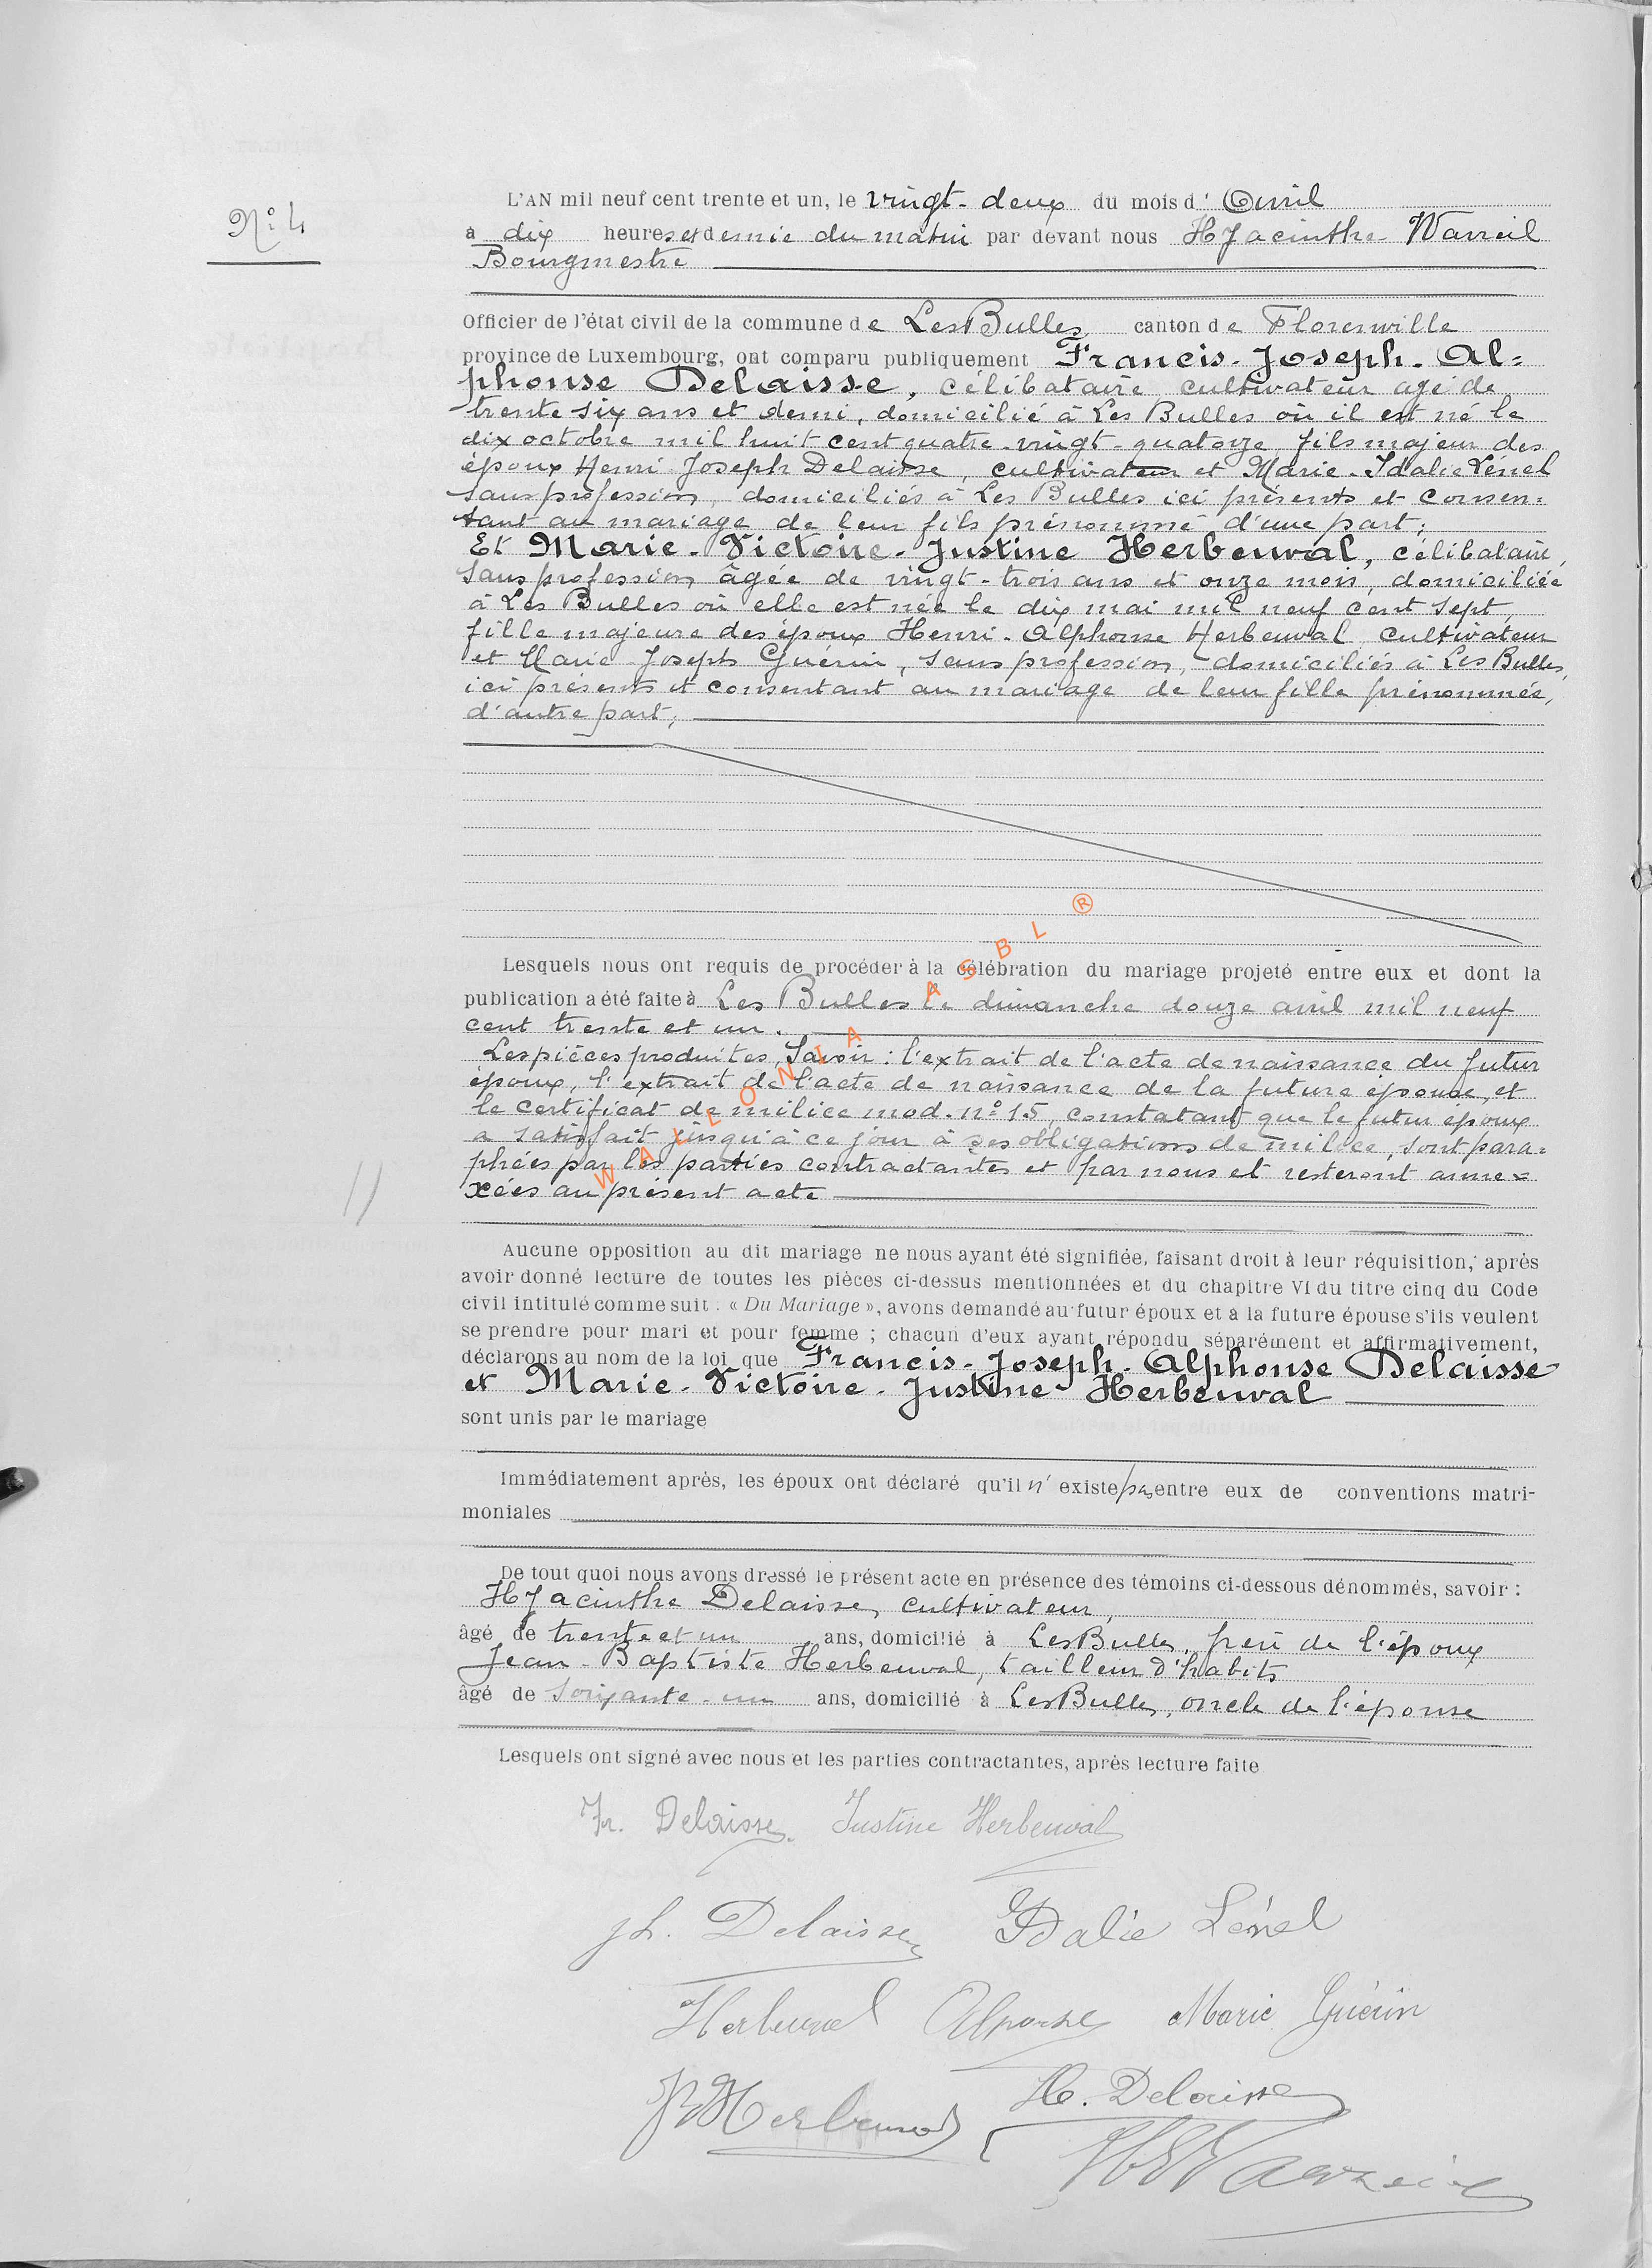 N° 4
L'AN mil neuf cent trente et un, le vingt-deux du mois d'Avril
à dix heures et demie du matin par devant nous Hyacinthe Warzeil
Bourgmestre
Officier de l'état civil de la commune de Les Bulles canton de Florenville
province de Luxembourg, ont comparu publiquement Francis-Joseph-Al=
phonse Delaisse, célibataire cultivateur agé de
trente six ans et demi, domicilié à Les Bulles où il est né le
dix octobre mil huit cent quatre-vingt-quatorze, fils majeur des
époux Henri-Joseph Delaisse, cultivateur et Marie-Idalie Lénel
sans profession, domiciliés à Les Bulles ici présents et consen=
tant au mariage de leur fils prénommé d'une part;
Et Marie-Victoire-Justine Herbeuval, célibataire,
sans profession, âgée de vingt-trois ans et onze mois, domiciliée
à Les Bulles où elle est née le dix mai mil neuf cent sept,
fille majeure des époux Henri-Alphonse Herbeuval cultivateur
et Marie Joseph Guérin, sans profession, domiciliés à Les Bulles,
ici présents et consentant au mariage de leur fille prénommée,
d'autre part,
Lesquels nous ont requis de procéder à la célébration du mariage projeté entre eux et dont la
publication a été faite à Les Bulles le dimanche douze avril mil neuf
cent trente et un.
Les pièces produites, Savoir: l'extrait de l'acte de naissance du futur
époux, l'extrait de l'acte de naissance de la future épouse, et
le certificat de milice mod. n° 15, constatant que le futur époux
a satisfait jusqu'à ce jour à ses obligations de milice, sont para=
phées par les parties contractantes et par nous et resteront anne=
xées au présent acte
WALLONIA ASBL ®
Aucune opposition au dit mariage ne nous ayant été signifiée, faisant droit à leur réquisition, après
avoir donné lecture de toutes les pièces ci-dessus mentionnées et du chapitre VI du titre cinq du Code
civil intitulé comme suit : « Du Mariage », avons demandé au futur époux et à la future épouse s'ils veulent
se prendre pour mari et pour femme ; chacun d'eux ayant répondu séparément et affirmativement,
déclarons au nom de la loi que Francis-Joseph-Alphonse Delaisse
et Marie-Victoire-Justine Herbeuval
sont unis par le mariage
Immédiatement après, les époux ont déclaré qu'il n'existe pas entre eux de conventions matri-
moniales
De tout quoi nous avons dressé le présent acte en présence des témoins ci-dessous dénommés, savoir :
Hyacinthe Delaisse, cultivateur,
âgé de trente et un ans, domicilié à Les Bulles, frère de l'époux
Jean-Baptiste Herbeuval, tailleur d'habits
âgé de soixante-un ans, domicilié à Les Bulles, oncle de l'épouse
Lesquels ont signé avec nous et les parties contractantes, après lecture faite
Fr. Delaisse. Justine Herbeuval
jh. Delaisse Idalie Lénel
Herbeuval Alphonse Marie Guérin
JB Herbeuval H. Delaisse